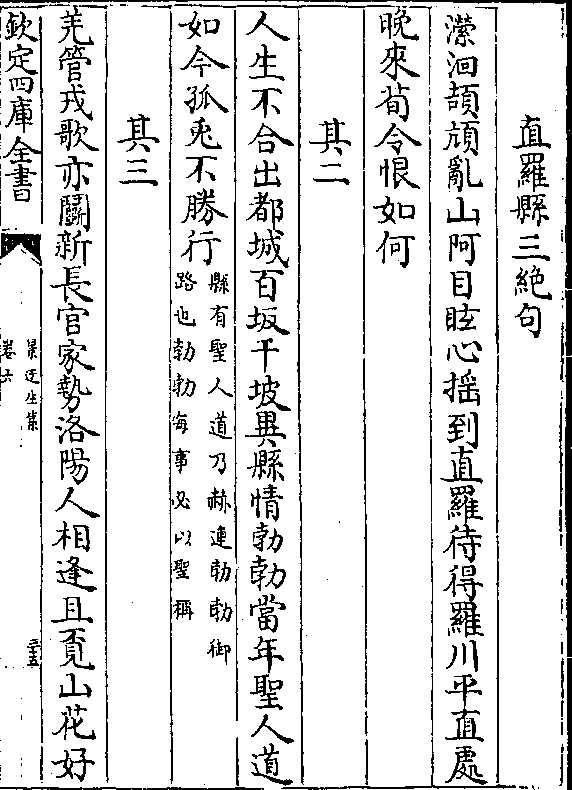 直羅縣三絶句
濴洄頡頏亂山阿目眩心揺到直羅待得羅川平直處
晩來荀令恨如何
其二
人生不合出都城百坂千坡異縣情勃勃當年聖人道
如今孤兎不勝行
縣有聖人道乃赫連勃勃御
路也勃勃每事必以聖稱
其三
羌管戎歌亦鬭新長官家勢洛陽人相逢且覓山花好
欽定四庫全書
景迂生集
卷六
二十五